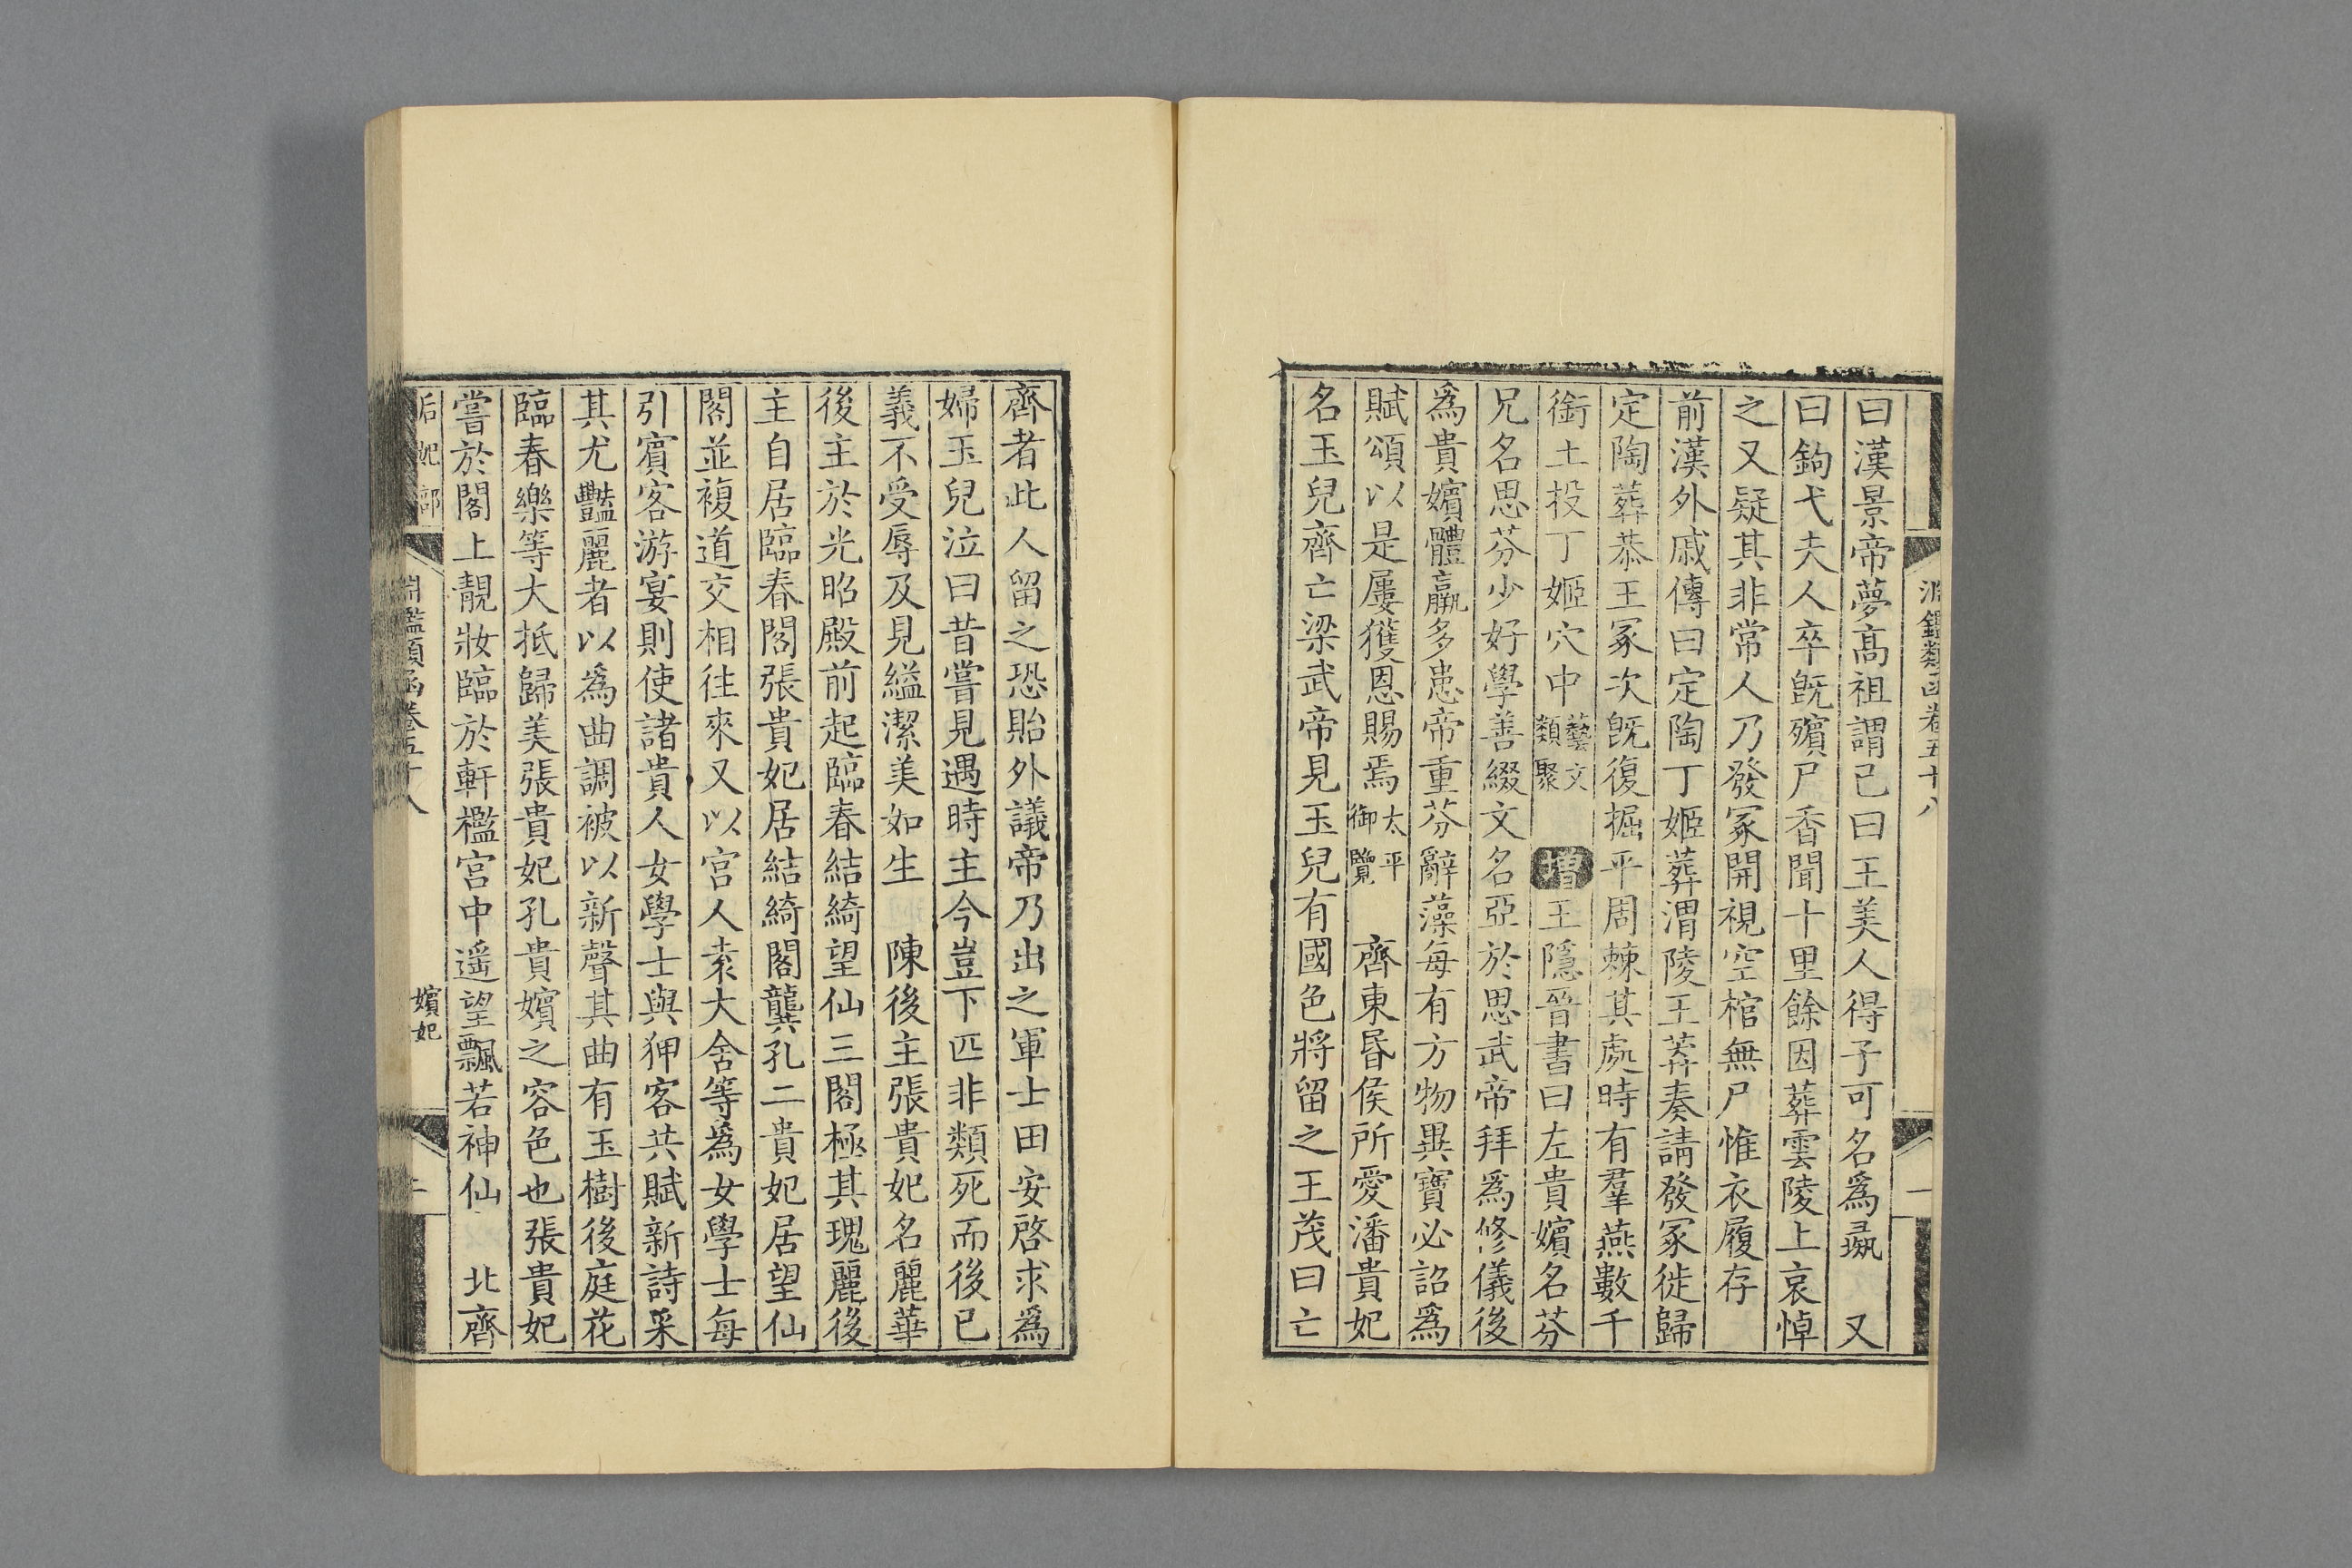 淵鑑類函卷五十八
一
曰漢景帝夢高祖謂己曰王美人得子可名爲彘　又
曰鉤弋夫人卒旣殯尸香聞十里餘因葬雲陵上哀悼
之又疑其非常人乃發冢開視空棺無尸惟衣履存
前漢外戚傳曰定陶丁姬葬渭陵王莽奏請發冢徙歸
定陶葬恭王冢次旣復掘平周棘其處時有羣燕數千
銜土投丁姬穴中藝文類聚　增王隱晉書曰左貴嬪名芬
兄名思芬少好學善綴文名亞於思武帝拜爲修儀後
爲貴嬪體羸多患帝重芬辭藻每有方物異寶必詔爲
賦頌以是屢獲恩賜焉太平御覽　齊東昏侯所愛潘貴妃
名玉兒齊亡梁武帝見玉兒有國色將留之王茂曰亡
齊者此人留之恐貽外議帝乃出之軍士田安啓求爲
婦玉兒泣曰昔嘗見遇時主今豈下匹非類死而後已
義不受辱及見縊潔美如生　陳後主張貴妃名麗華
後主於光昭殿前起臨春結綺望仙三閣極其瑰麗後
主自居臨春閣張貴妃居結綺閣龔孔二貴妃居望仙
閣並複道交相往來又以宮人袁大舍等爲女學士每
引賓客游宴則使諸貴人女學士與狎客共賦新詩采
其尤豔麗者以爲曲調被以新聲其曲有玉樹後庭花
臨春樂等大抵歸美張貴妃孔貴嬪之容色也張貴妃
嘗於閣上靚妝臨於軒檻宮中遥望飄若神仙　北齊
后妃部
淵鑑類函卷五十八
嬪妃